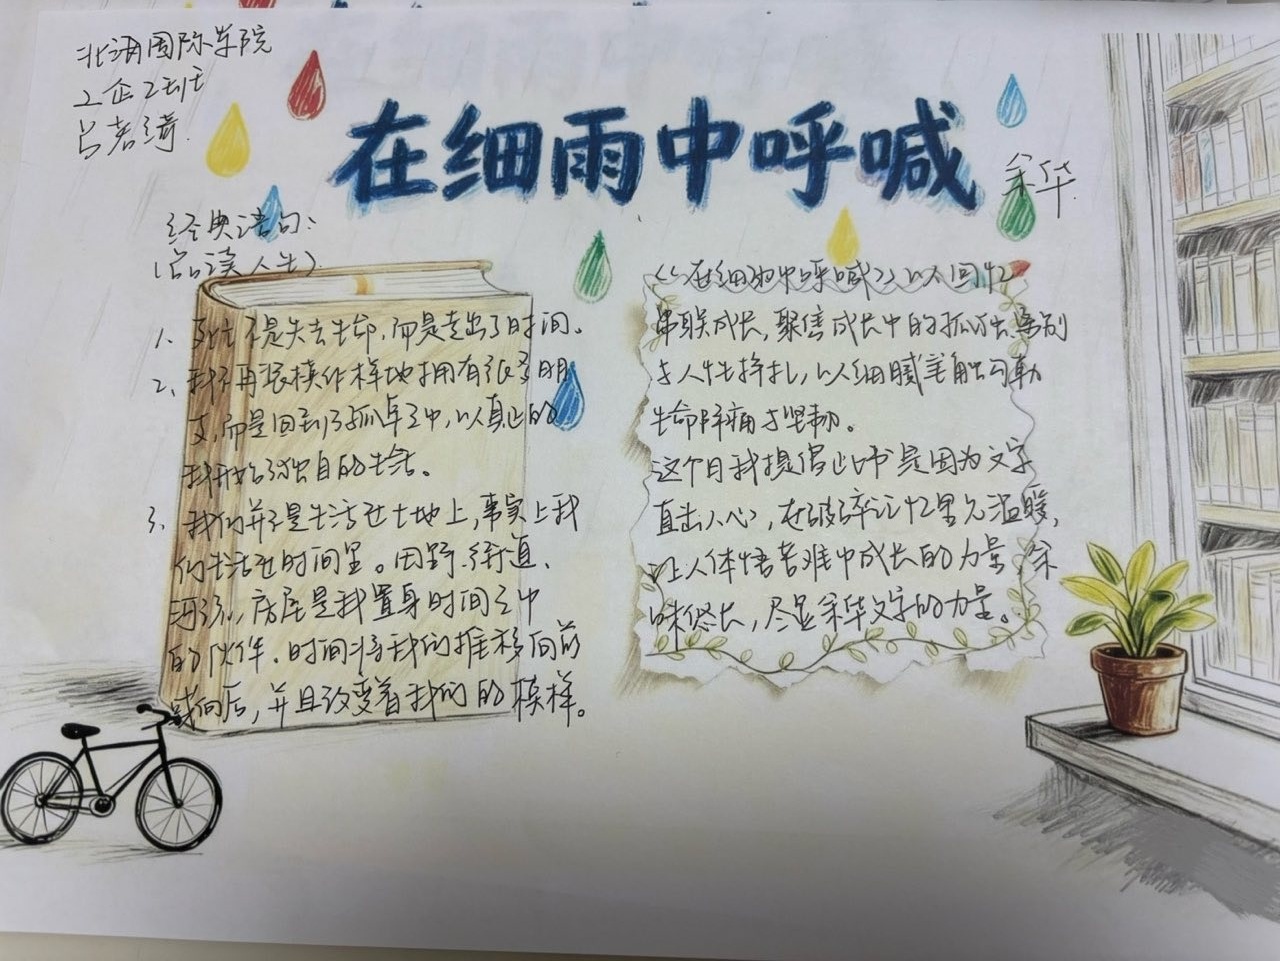 北海国际学院
工企2班
占若绮
在细雨中呼喊
余华
经典语句：
(品读人生)
1、死亡不是失去生命，而是走出了时间。
2、我不再装模作样地拥有很多朋
友，而是回到了孤单之中，以真正的
我开始了独自的生活。
3、我们并不是生活在土地上，事实上我
们生活在时间里。田野、街道、
河流、房屋是我置身时间之中
的伙伴。时间将我们推移向前
或向后，并且改变着我们的模样。
《在细雨中呼喊》以人回忆
串联成长，聚焦成长中的孤独、亲别
与人性挣扎，以细腻笔触勾勒
生命阵痛与坚韧。
这个月我提倡此书是因为文字
直击人心，在破碎记忆里见温暖，
让人体悟苦难中成长的力量，余
味悠长，尽显余华文字的力量。